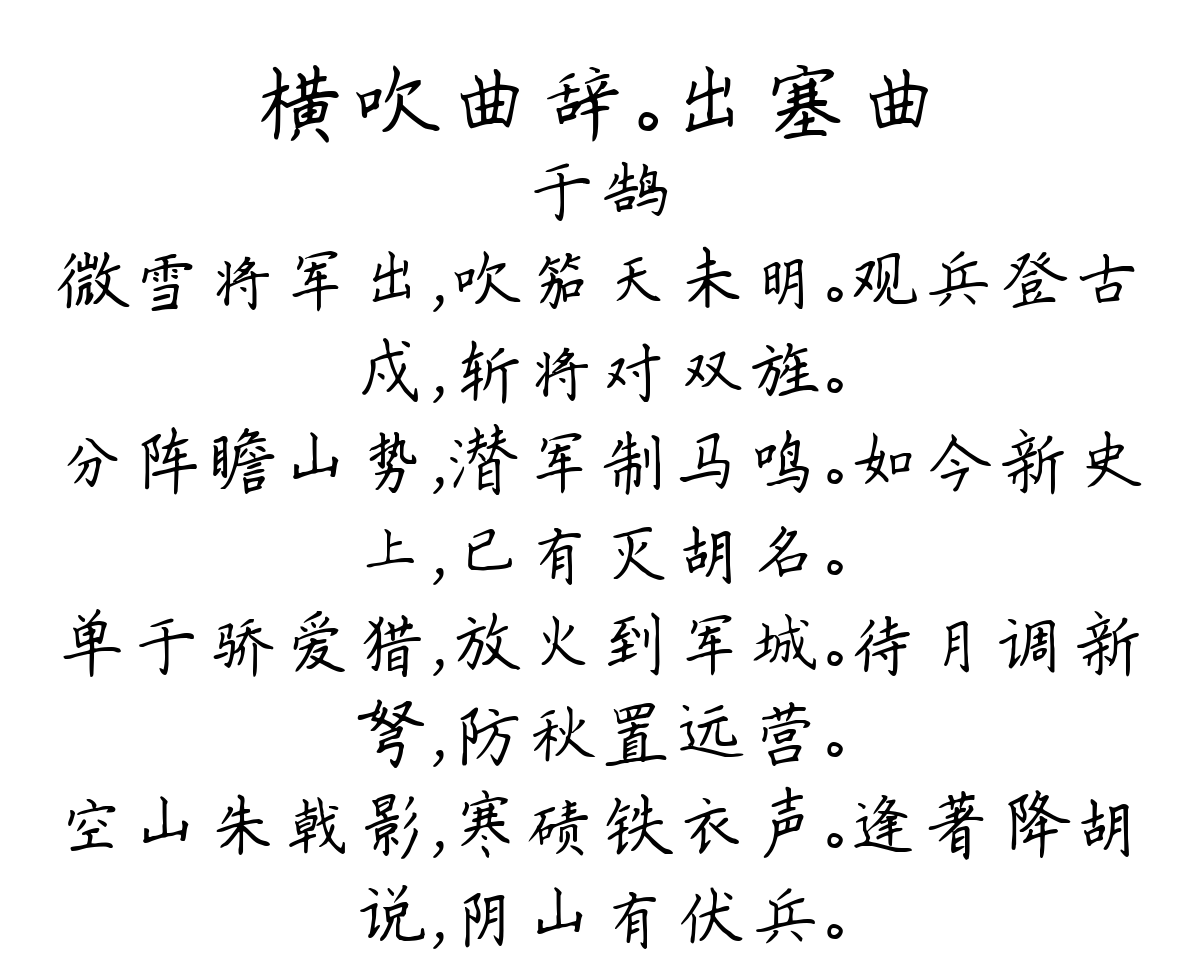 横吹曲辞。出塞曲
于鹄
微雪将军出,吹笳天未明。观兵登古
戍,斩将对双旌。
分阵瞻山势,潜军制马鸣。如今新史
上,已有灭胡名。
单于骄爱猎,放火到军城。待月调新
弩,防秋置远营。
空山朱戟影,寒碛铁衣声。逢著降胡
说,阴山有伏兵。